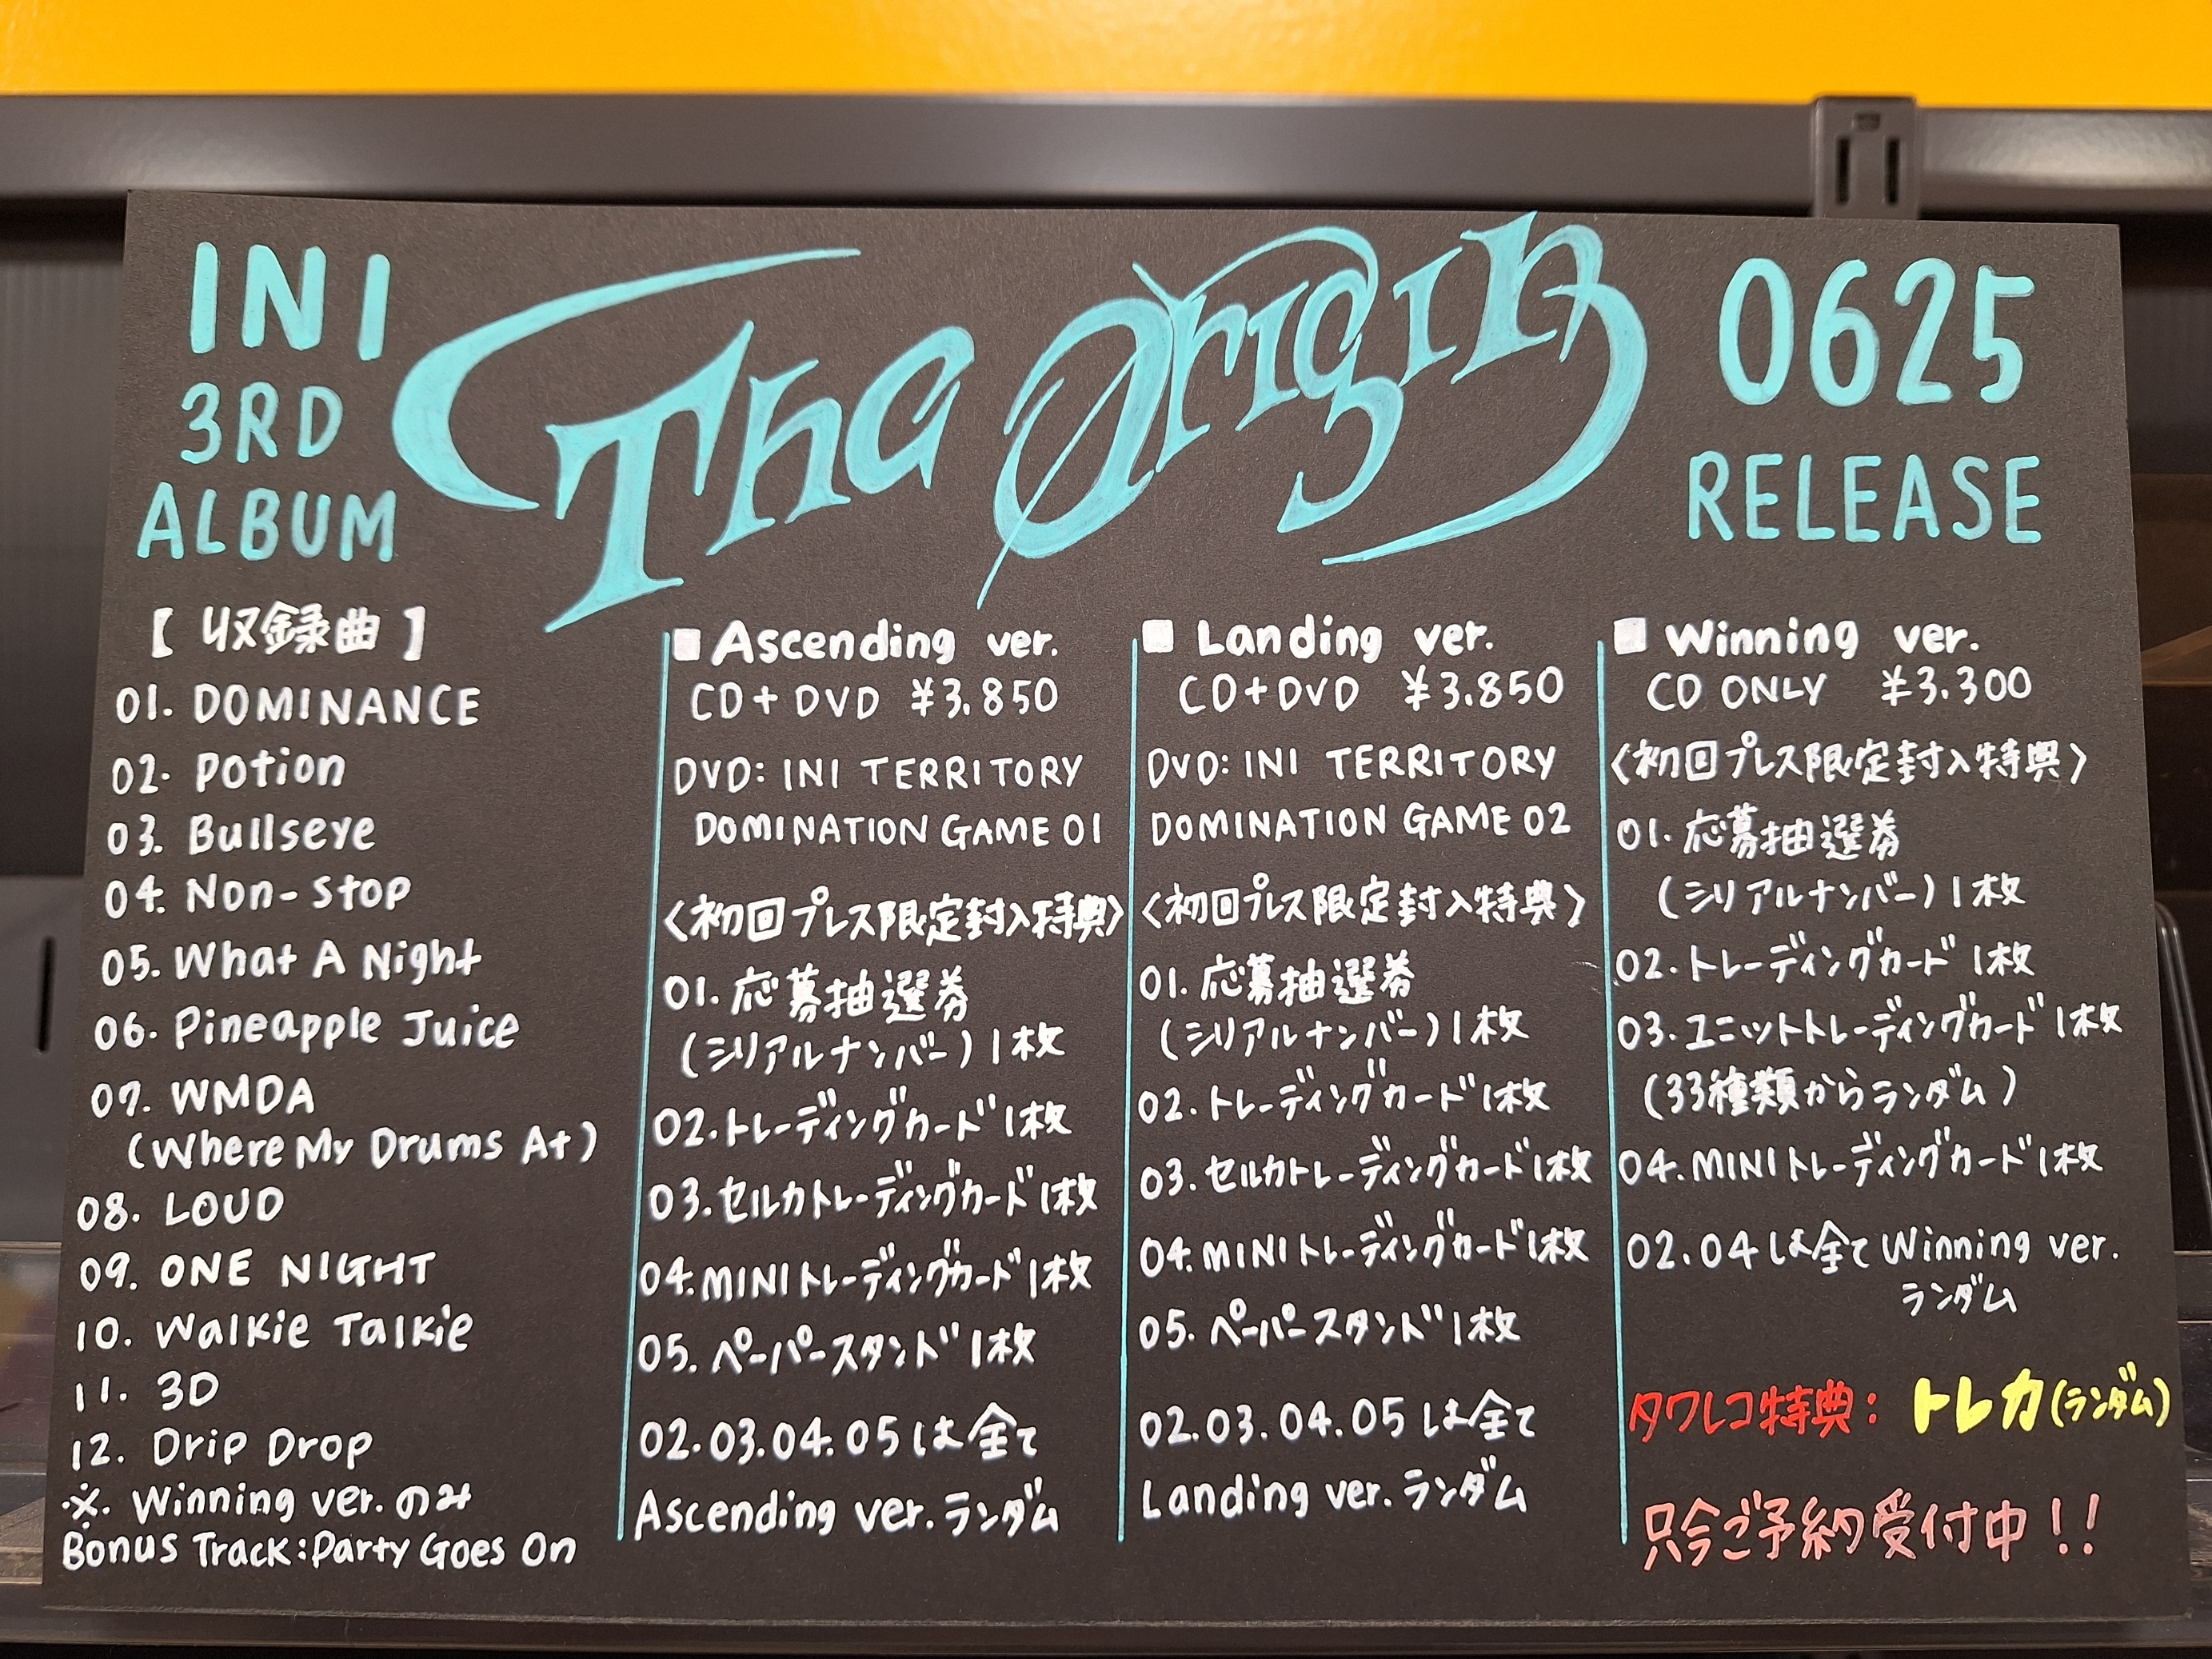 INI
3RD
ALBUM
The Origin
0625
RELEASE
【収録曲】
01. DOMINANCE
02. Potion
03. Bullseye
04. Non-Stop
05. What A Night
06. Pineapple Juice
07. WMDA
(Where My Drums At)
08. LOUD
09. ONE NIGHT
10. Walkie Talkie
11. 3D
12. Drip Drop
※. Winning ver.のみ
Bonus Track:Party Goes On
■Ascending ver.
CD+DVD ¥3.850
DVD: INI TERRITORY
DOMINATION GAME 01
〈初回プレス限定封入特典〉
01. 応募抽選券
(シリアルナンバー)1枚
02.トレーディングカード1枚
03.セルカトレーディングカード1枚
04.MINIトレーディングカード1枚
05. ペーパースタンド1枚
02.03.04.05は全て
Ascending ver.ランダム
■ Landing ver.
CD+DVD ¥3.850
DVD: INI TERRITORY
DOMINATION GAME 02
〈初回プレス限定封入特典〉
01. 応募抽選券
(シリアルナンバー)1枚
02.トレーディングカード1枚
03.セルカトレーディングカード1枚
04.MINIトレーディングカード1枚
05. ペーパースタンド1枚
02.03.04.05は全て
Landing ver.ランダム
■ Winning ver.
CD ONLY ¥3.300
〈初回プレス限定封入特典〉
01. 応募抽選券
(シリアルナンバー)1枚
02.トレーディングカード1枚
03.ユニットトレーディングカード1枚
(33種類からランダム)
04.MINIトレーディングカード1枚
02.04は全てWinning ver.
ランダム
タワレコ特典: トレカ(ランダム)
只今ご予約受付中!!